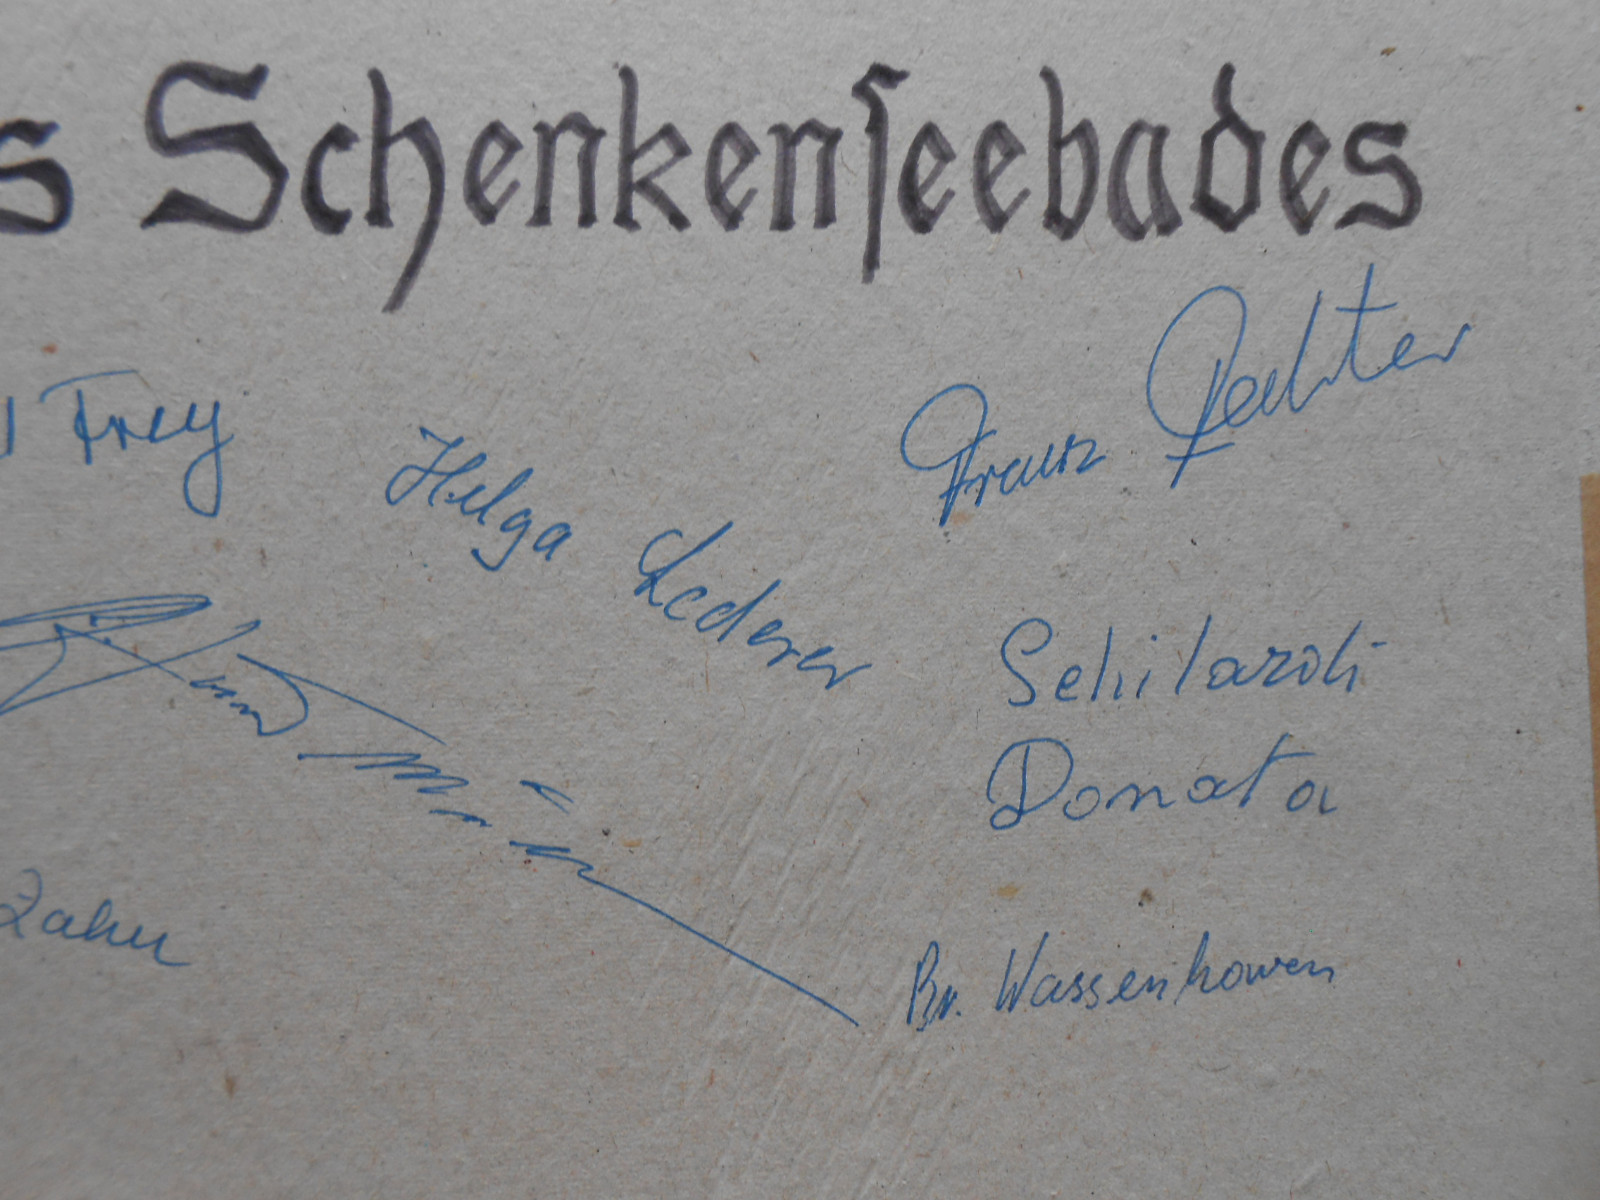 s Schenkenseebades
Frey
Helga Lederer
Franz
Schilardi
Donata
Zahn
Br. Wassenhowen